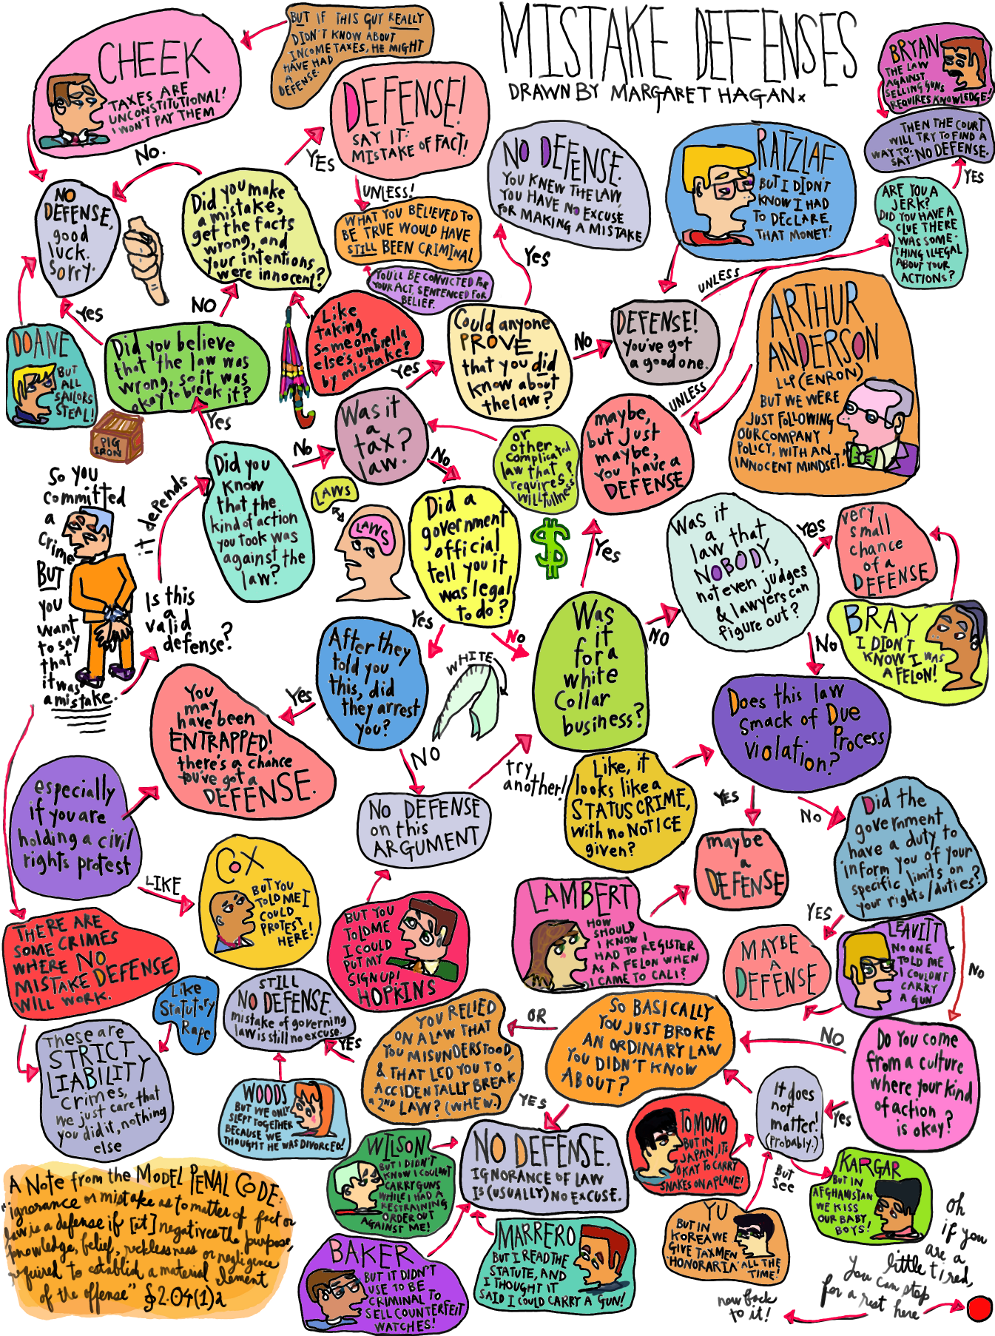 MISTAKE DEFENSES
DRAWN BY MARGARET HAGAN
CHEEK
TAXES ARE
UNCONSTITUTIONAL!
I WON'T PAY THEM
BUT IF THIS GUY REALLY
DIDN'T KNOW ABOUT
INCOME TAXES, HE MIGHT
HAVE HAD
A DEFENSE.
DEFENSE!
SAY IT:
MISTAKE OF FACT!
NO DEFENSE.
YOU KNEW THE LAW
YOU HAVE NO EXCUSE
FOR MAKING A MISTAKE
RATZLAF
BUT I DIDN'T
KNOW I HAD
TO DECLARE
THAT MONEY!
BRYAN
THE LAW
AGAINST
SELLING GUNS
REQUIRES KNOWLEDGE!
THEN THE COURT
WILL TRY TO FIND A
WAY TO
SAY: NO DEFENSE.
YES
ARE YOU A
JERK?
DID YOU HAVE A
CLUE THERE
WAS SOME-
THING ILLEGAL
ABOUT YOUR
ACTIONS?
NO.
YES
NO
DEFENSE,
good
luck.
Sorry.
Did you make
a mistake,
get the facts
wrong, and
your intentions
were innocent?
UNLESS!
WHAT YOU BELIEVED TO
BE TRUE WOULD HAVE
STILL BEEN CRIMINAL
YOU'LL BE CONVICTED FOR
YOUR ACT, SENTENCED FOR
BELIEF.
Yes
UNLESS
NO
Yes
DOANE
BUT
ALL
SAILORS
STEAL!
Did you believe
that the law was
wrong, so it was
okay to break it?
Like
taking
someone
else's umbrella
by mistake?
Could anyone
PROVE
that you did
know about
the law?
No
DEFENSE!
you've got
a good one.
ARTHUR
ANDERSON
LLP (ENRON)
BUT WE WERE
JUST FOLLOWING
OUR COMPANY
POLICY, WITH AN
INNOCENT MINDSET.
UNLESS
PIG
IRON
Yes
Yes
Was it
a
tax?
law.
No
No
or
other
complicated
law that
requires?
WILLFULLNESS
maybe,
but just
maybe,
you have a
DEFENSE
So you
committed
a
crime
BUT
you
want
to say
that
it was
a mistake.
it depends
Is this
a
valid
defense?
Did you
know
that the
kind of action
you took was
against the
law?
LAWS
LAWS
Did a
government
official
tell you it
was legal
to do?
$
Yes
Was it
a
law that
NOBODY,
not even judges
& lawyers can
figure out?
Yes
very
small
chance
of a
DEFENSE
BRAY
I DIDN'T
KNOW I WAS
A FELON!
Yes
No
NO
No
Was
it
for a
white
Collar
business?
After they
told you
this, did
they arrest
you?
WHITE
Yes
NO
You
may
have been
ENTRAPPED!
there's a chance
you've got a
DEFENSE.
Does this law
smack of Due
Process
Violation?
especially
if you are
holding a civil
rights protest
LIKE
NO DEFENSE
on this
ARGUMENT
try
another!
Like, it
looks like a
STATUS CRIME,
with no NOTICE
given?
YES
No
maybe
a
DEFENSE
Did the
government
have a duty to
inform you of your
specific limits on
your rights/duties?
COX
BUT YOU
TOLD ME I
COULD
PROTEST!
HERE!
BUT YOU
TOLD ME
I COULD
PUT MY
SIGN UP!
HOPKINS
LAMBERT
HOW
SHOULD
I KNOW I
HAD TO REGISTER
AS A FELON WHEN
I CAME TO CALI?
YES
MAYBE
A
DEFENSE
LEAVITT
NO ONE
TOLD ME
I COULDN'T
CARRY
A GUN
NO
THERE ARE
SOME CRIMES
WHERE NO
MISTAKE DEFENSE
WILL WORK.
Like
Statutory
Rape
These are
STRICT
LIABILITY
crimes,
we just care that
you did it, nothing
else
STILL
NO DEFENSE.
mistake of governing
law is still no excuse.
YES
WOODS
BUT WE ONLY
SLEPT TOGETHER
BECAUSE WE
THOUGHT HE WAS DIVORCED!
YOU RELIED
ON A LAW THAT
YOU MISUNDERSTOOD,
& THAT LED YOU TO
ACCIDENTALLY BREAK
A 2ND LAW? (WHEW.)
OR
SO BASICALLY
YOU JUST BROKE
AN ORDINARY LAW
YOU DIDN'T KNOW
ABOUT?
NO
Do you come
from a culture
where your kind
of action
is okay?
YES
Yes
It does
not
matter.
(probably.)
BUT
SEE
WILSON
BUT I DIDN'T
KNOW I COULDN'T
CARRY GUNS
WHILE I HAD A
RESTRAINING
ORDER OUT
AGAINST ME!
NO DEFENSE.
IGNORANCE OF LAW
IS (USUALLY) NO EXCUSE.
TOMONO
BUT IN
JAPAN, IT'S
OKAY TO CARRY
SNAKES ON A PLANE!
KARGAR
BUT IN
AFGHANISTAN
WE KISS
OUR BABY
BOYS!
YU
BUT IN
KOREA WE
GIVE TAXMEN
HONORARIA ALL THE
TIME!
BAKER
BUT IT DIDN'T
USE TO BE
CRIMINAL TO
SELL COUNTERFEIT
WATCHES!
MARRERO
BUT I READ THE
STATUTE, AND
I THOUGHT IT
SAID I COULD CARRY A GUN!
A Note from the MODEL PENAL CODE:
"ignorance or mistake as to matter of fact or
law is a defense if [it] negatives the purpose,
knowledge, belief, recklessness or negligence
required to establish a material element
of the offense" §2.04(1)a
oh
if you
are a
little tired,
you can stop
for a rest here
now back
to it!